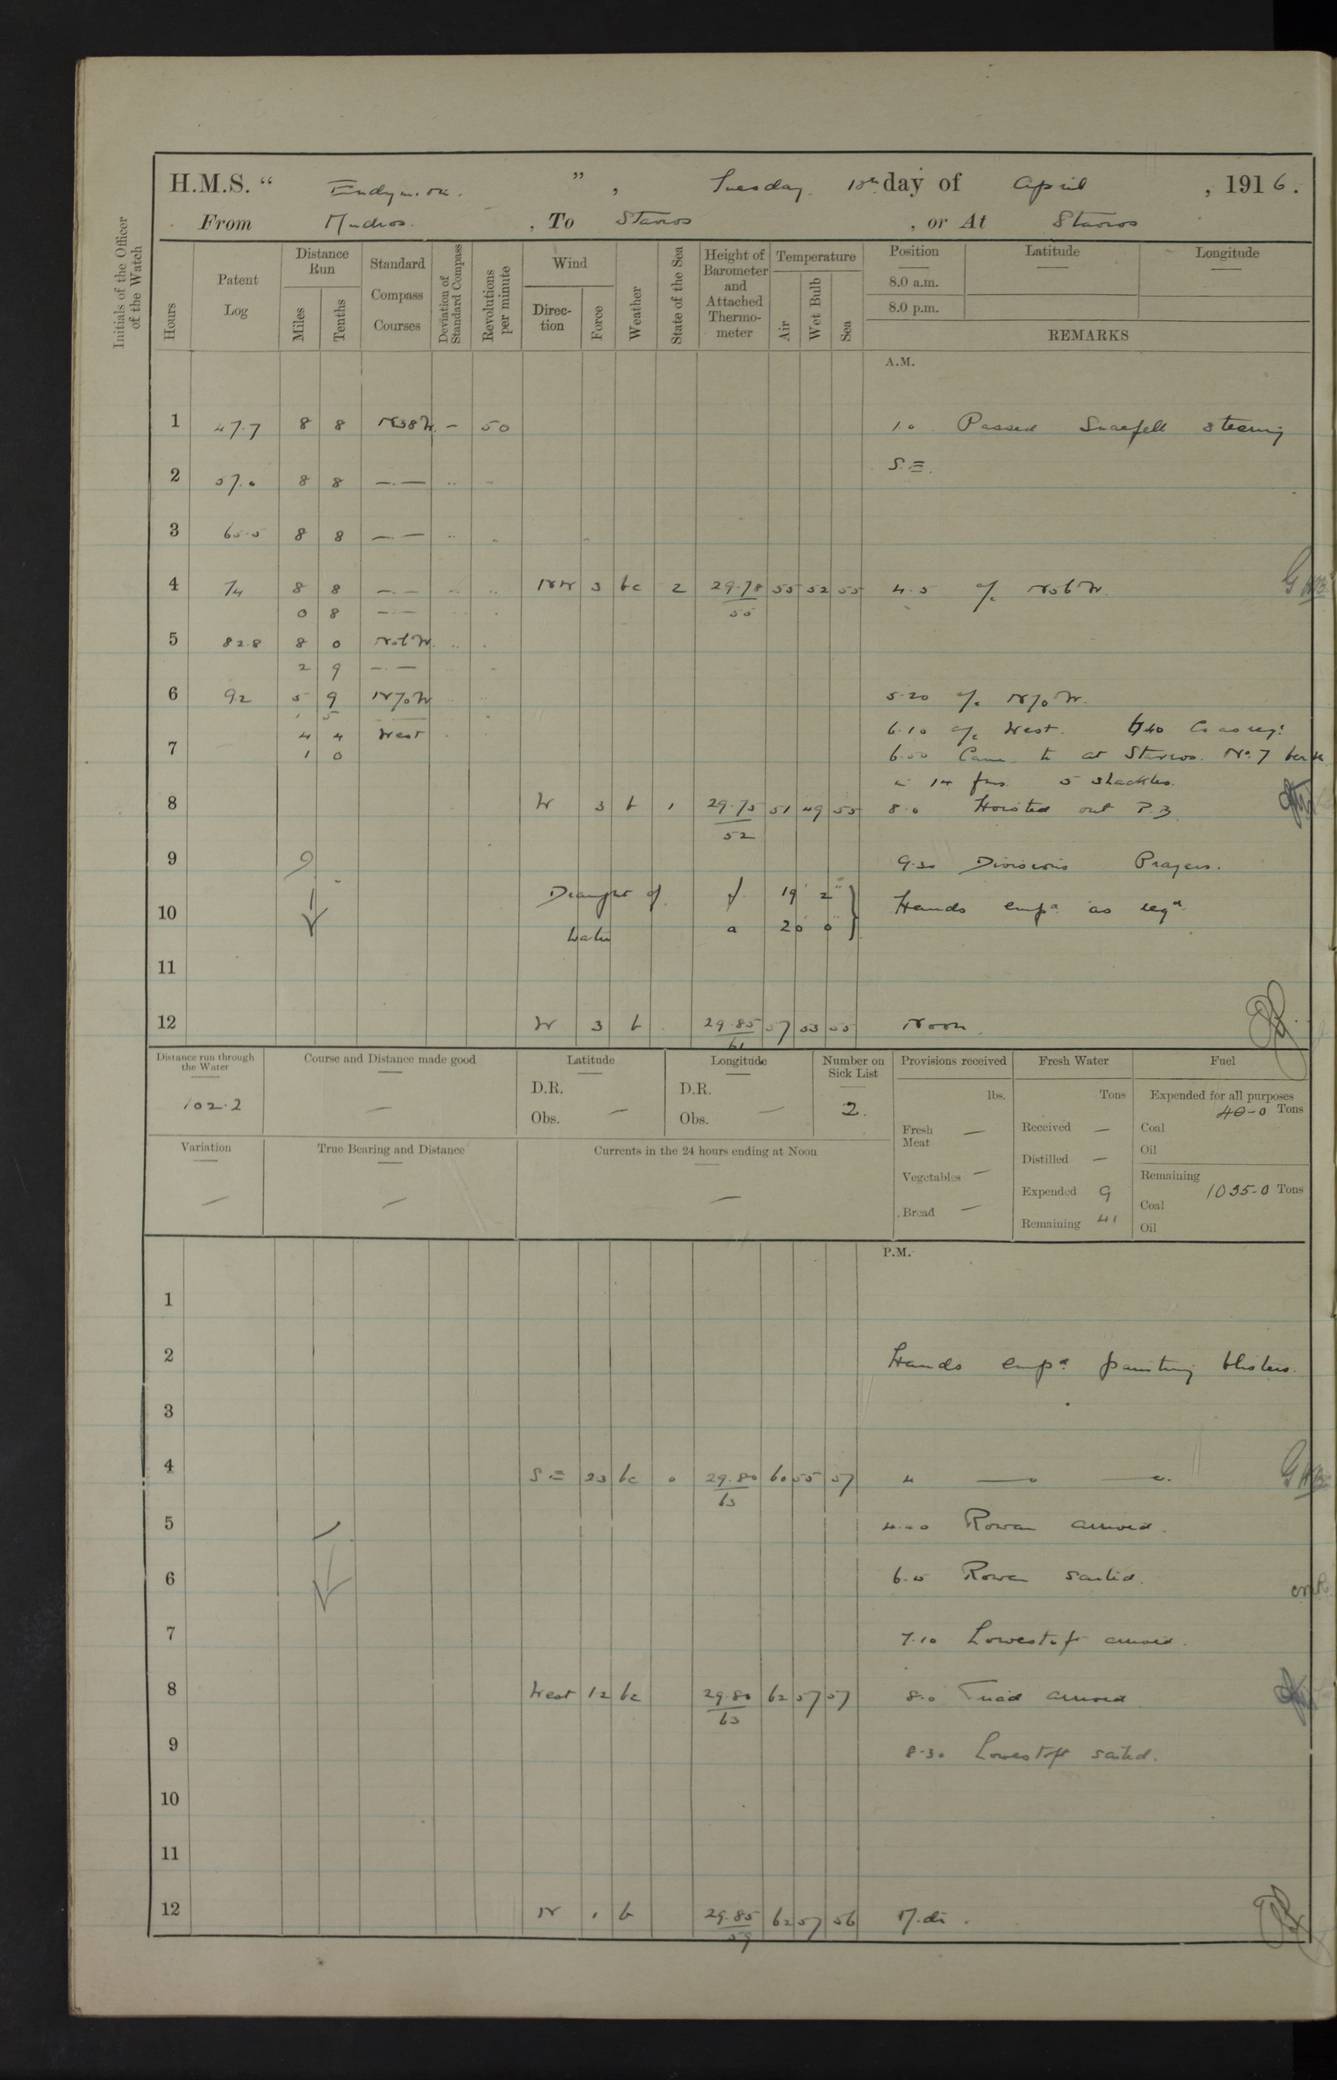 H.M.S. “ Endymion. ” , Tuesday 18th day of April , 1916.
From Mudros. , To Stavros , or At Stavros
Initials of the Officer of the Watch
Hours
Patent Log
Distance Run
Miles
Tenths
Standard Compass Courses
Deviation of Standard Compass
Revolutions per minute
Wind
Direc-tion
Force
Weather
State of the Sea
Height of Barometer and Attached Thermo-meter
Temperature
Air
Wet Bulb
Sea
Position
Latitude
Longitude
8.0 a.m.
8.0 p.m.
REMARKS
A.M.
1 47.7 8 8 N38W — 50 1.0 Passed Snaefell steering
S.E.
2 57.0 8 8 —.—
3 65.5 8 8 —.—
4 74 8 8 —.— NW 3 bc 2 29.78 55 52 55 4.5 a/c N56W.
0 8 —.— 55
5 82.8 8 0 N56W
2 9 —.—
6 92 5 9 N70W 5.20 a/c N70W.
4 4 West 6.10 a/c West. 6.40 Co as req.
7 1 0 6.50 Came to at Stavros. No. 7 berth
in 14 fms. 5 shackles.
8 W 3 b 1 29.75 51 49 55 8.0 Hoisted out P.B.
52
9 9.30 Divisions Prayers.
Draught of f 19' 2"
10 Hands empd as reqd.
Water a 20' 0"
11
12 W 3 b 29.85 57 53 55 Noon.
61
Distance run through the Water
102.2
Course and Distance made good
—
Latitude
D.R.
Obs. —
Longitude
D.R.
Obs. —
Number on Sick List
2.
Provisions received
lbs.
Fresh Meat —
Vegetables —
Bread —
Fresh Water
Tons
Received —
Distilled —
Expended 9
Remaining 41
Fuel
Expended for all purposes
40-0 Tons
Coal
Oil
Remaining
1035-0 Tons
Coal
Oil
Variation
—
True Bearing and Distance
—
Currents in the 24 hours ending at Noon
—
P.M.
1
2 Hands empd painting blisters.
3
4 SE 23 bc 0 29.80 60 55 57 " —— ——
63
5 4.40 Rowan arrived.
6 6.0 Rowan sailed.
7 7.10 Lowestoft arrived.
8 West 12 bc 29.80 62 57 57 8.0 Triad arrived
63
9 8.30 Lowestoft sailed.
10
11
12 N 1 b 29.85 62 57 56 Mdt.
59